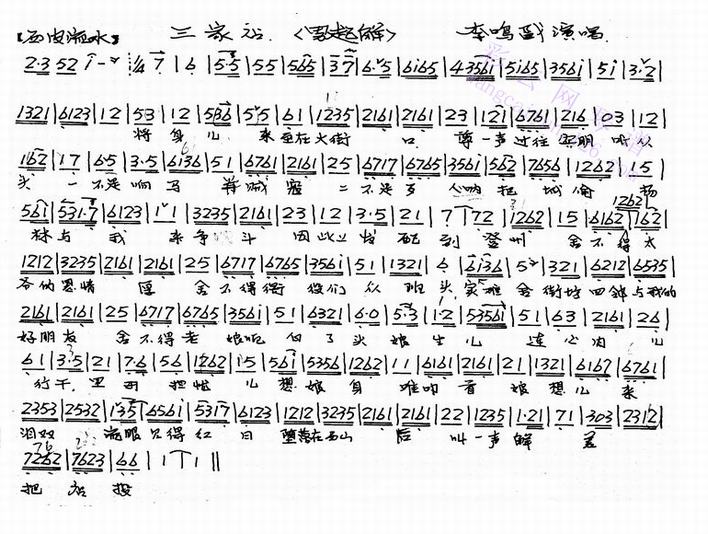 【西皮流水】 三家店 〈男起解〉 李鸣盛演唱
2·3 52 i - 7 | 1/4 7 | 6 | 5·5 | 55 | 565 | 37 | 6·5 | 6165 | 4356i | 5i65 | 356i | 5i | 3·2 |
1321 | 6123 | 12 | 53 | 12 | 536 | 5·5 | 61 | 1235 | 2161 | 2161 | 23 | 121 | 6761 | 216 | 03 | 12 |
将身儿 来至在大街 口 尊一声过往宾朋听从
162 | 17 | 65 | 3·5 | 6136 | 51 | 6761 | 2161 | 25 | 6717 | 6765 | 356i | 562 | 7656 | 1262 | 15 |
头 一不是响马 并贼寇 二不是歹人呐把城偷 杨
56i | 531·7 | 6123 | 1·1 | 3235 | 2161 | 23 | 12 | 3·5 | 21 | 7 772 | 1262 | 15 | 6162 | 762 |
林与我 来争斗 因此上发配到登州 舍不得太
1212 | 3235 | 2161 | 2161 | 25 | 6717 | 6765 | 356i | 51 | 1321 | 6 | 6136 | 5 | 321 | 6212 | 6535 |
爷的恩情厚 舍不得衙役们众班头 实难舍街坊四邻与我的
2161 | 2161 | 25 | 6717 | 6765 | 356i | 51 | 6321 | 6·0 | 5·3 | 1·2 | 5356i | 51 | 63 | 2161 | 26 |
好朋友 舍不得老娘呃白了头 娘生儿 连心肉 儿
61 | 3·5 | 21 | 7·6 | 56 | 1262 | 15 | 56i | 5356 | 1262 | 11 | 6161 | 2161 | 21 | 1321 | 6167 | 6761 |
行千里母担忧 儿想娘身难叩首 娘想儿来
2353 | 2532 | 135 | 656i | 5317 | 6123 | 1212 | 3235 | 2161 | 2161 | 22 | 1235 | 1·21 | 71 | 303 | 2312 |
泪双流 眼见得红日 坠落在西山后 叫一声解差
7262 | 7623 | 66 | 1 1 1 ||
把店投